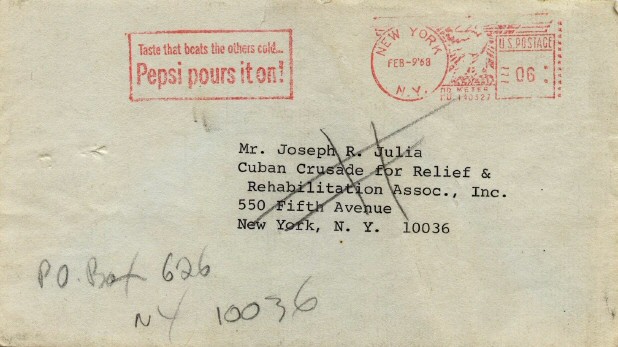 Taste that beats the others cold...
Pepsi pours it on!
NEW YORK
FEB-9'68
N.Y.
U.S. POSTAGE
06
P.B. METER
Mr. Joseph R. Julia
Cuban Crusade for Relief &
Rehabilitation Assoc., Inc.
550 Fifth Avenue
New York, N. Y. 10036
P.O. Box 626
NY 10036